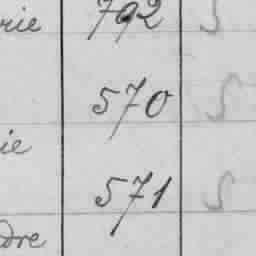 rie 792 S
570 S
ie
571 S
dre